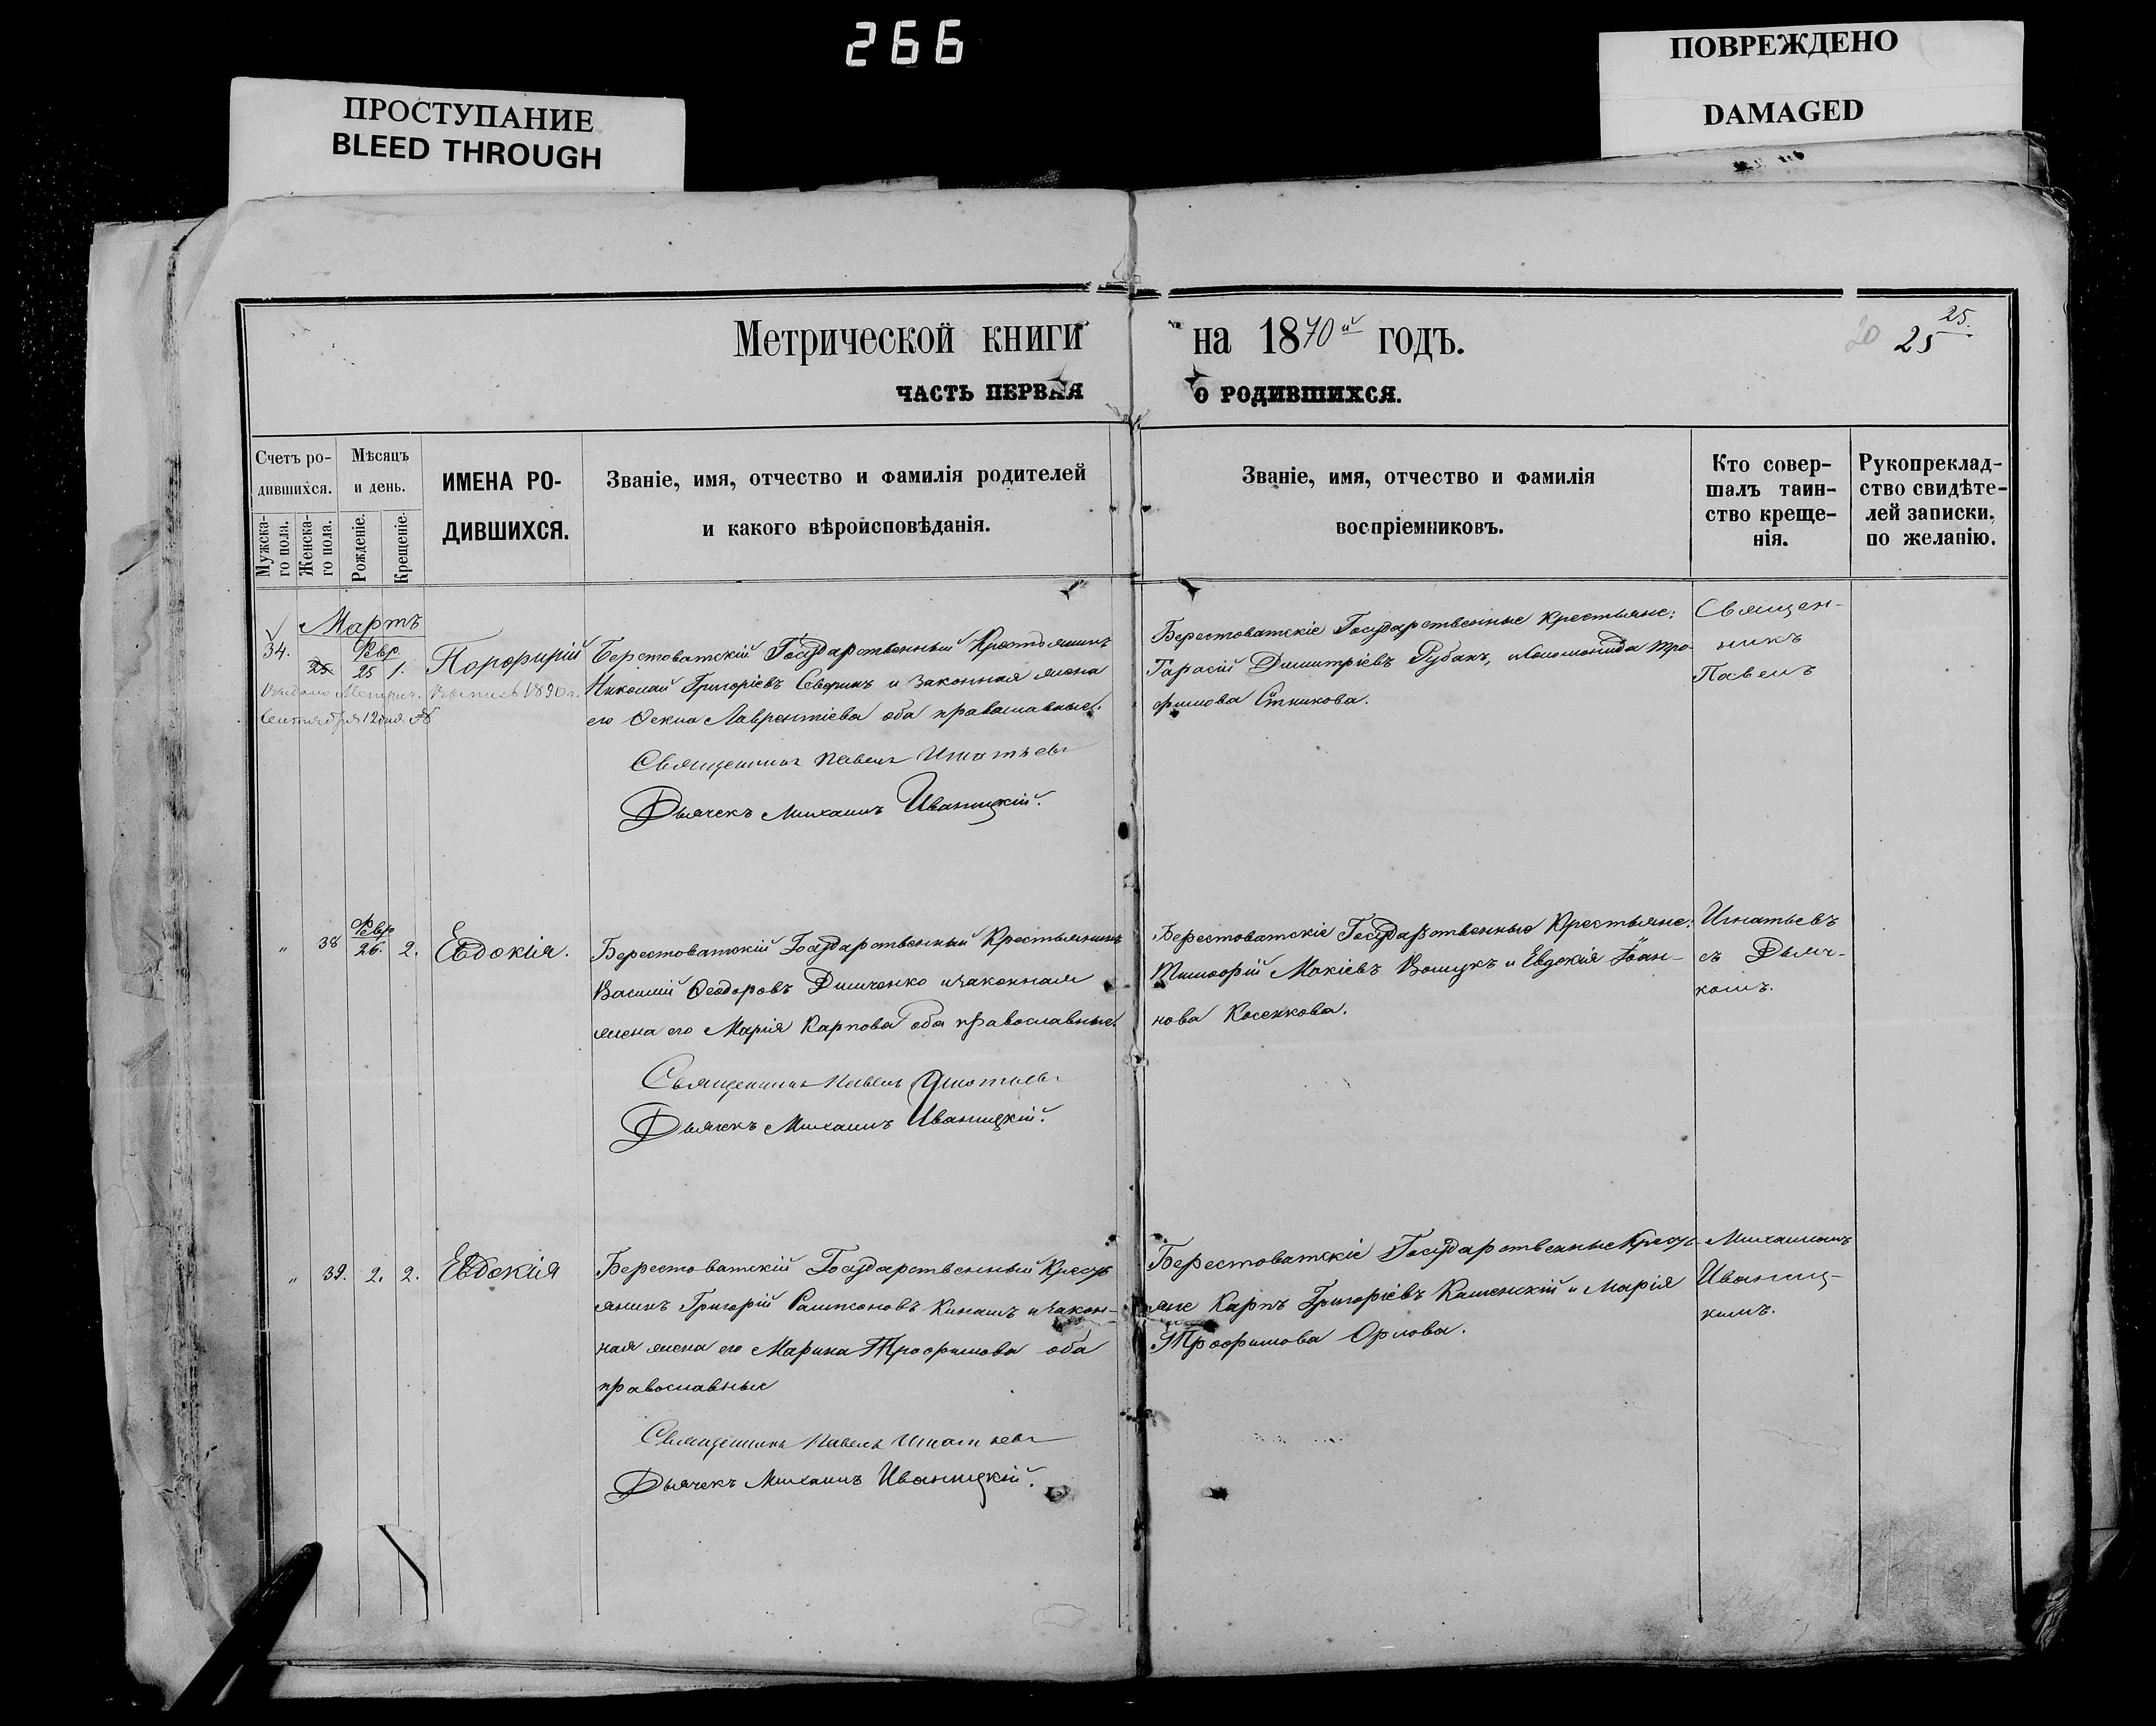 266
ПРОСТУПАНИЕ
BLEED THROUGH
ПОВРЕЖДЕНО
DAMAGED
Метрической книги на 1870й годъ.
25.
20 25
ЧАСТЬ ПЕРВАЯ О РОДИВШИХСЯ.
Счетъ ро-
дившихся.
Мужска-
го пола.
Женска-
го пола.
Мѣсяцъ
и день.
Рожденіе.
Крещеніе.
ИМЕНА РО-
ДИВШИХСЯ.
Званіе, имя, отчество и фамилія родителей
и какого вѣроисповѣданія.
Званіе, имя, отчество и фамилія
воспріемниковъ.
Кто совер-
шалъ таин-
ство креще-
нія.
Рукоприклад-
ство свидѣте-
лей записки,
по желанію.
Мартъ
34. Февр 25 1. Порфирій
Выдана Метрич. Выпись 1890 г.
Сентября 12 дня
Берстоватскій Государственный Крестьянинъ
Николай Григоріевъ Северинъ и законная жена
его Лаврентіева оба православные.
Священникъ Павелъ Игнатьевъ
Дьячекъ Михаилъ Иваницкій.
Берестоватскіе Государственные крестьяне:
Тарасій Димитріевъ Рубанъ, и Соломонида Тро-
фимова
Священ-
никъ
Павелъ
" 38 Февр 26. 2. Евдокія.
Берестоватскій Государственный Крестьянинъ
Василій Ѳеодоровъ Димченко и законная
жена его Марія Карпова оба православные.
Священникъ Павелъ Игнатьевъ
Дьячекъ Михаилъ Иваницкій.
Берестоватскіе Государственные Крестьяне:
Тимофій Мокіевъ и Евдокія Іоан-
нова Косенкова.
Игнатьевъ
съ Дьяч-
комъ.
" 39. 2. 2. Евдокія
Берестоватскій Государственный Кресть
янинъ Григорій Самсоновъ Кинашъ и закон-
ная жена его Марина Трофимова оба
православные
Священникъ Павелъ Игнатьевъ
Дьячекъ Михаилъ Иваницкій.
Берестоватскіе Государственные Кресть
яне Карпъ Григоріевъ Каменскій и Марія
Трофимова Орлова.
Михаиломъ
Иваниц-
кимъ.